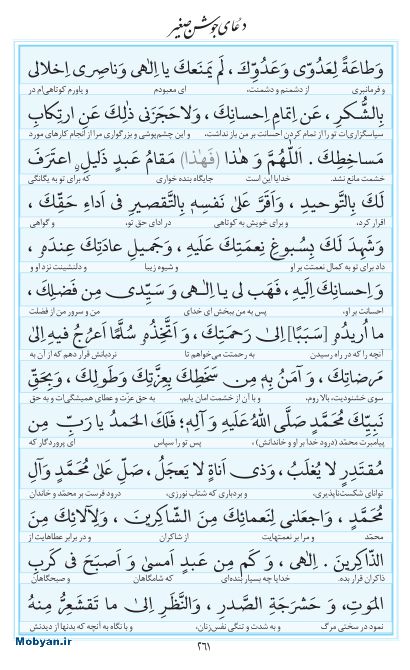 دعای جوشن صغیر
وَطاعَةً لِعَدُوّی وَعَدُوِّكَ، لَم یَمنَعكَ یا اِلٰهی وَناصِری اِخلالی
و فرمانبری از دشمنم و دشمنت، ای معبودم و یاورم کوتاهی‌ام در
بِالشُّكرِ، عَن اِتمامِ اِحسانِكَ، وَلا حَجَزَنی ذٰلِكَ عَنِ ارتِكابِ
سپاسگزاری‌ات تو را از تمام کردن احسانت بر من باز نداشت، و این چشم‌پوشی و بزرگواری مرا از انجام کارهای مورد
مَساخِطِكَ. اَللّٰهُمَّ وَ هٰذا (فَهٰذا) مَقامُ عَبدٍ ذَلیلٍ، اعتَرَفَ
خشمت مانع نشد. خدایا این است جایگاه بنده خواری که برای تو به یگانگی
لَكَ بِالتَّوحیدِ، وَ اَقَرَّ عَلیٰ نَفسِهٖ بِالتَّقصیرِ فی اَداءِ حَقِّكَ،
اقرار کرد، و برای خویش به کوتاهی در ادای حق تو، و گواهی
وَ شَهِدَ لَكَ بِسُبوغِ نِعمَتِكَ عَلَیهِ، وَجَمیلِ عادَتِكَ عِندَهٗ،
داد برای تو به کمال نعمتت بر او و شیوه زیبا و دلنشینت نزد او و
وَ اِحسانِكَ اِلَیهِ، فَهَب لی یا اِلٰهی وَ سَیِّدی مِن فَضلِكَ،
احسانت بر او، پس به من ببخش ای خدای من و سرور من از فضلت
ما اُریدُهٗ [سَبَبًا] اِلیٰ رَحمَتِكَ، وَ اَتَّخِذُهٗ سُلَّمًا اَعرُجُ فیهِ اِلیٰ
آنچه را که در راه رسیدن به رحمتت می‌خواهم تا نردبانش قرار دهم که از آن به
مَرضاتِكَ، وَ آمَنُ بِهٖ مِن سَخَطِكَ بِعِزَّتِكَ وَطَولِكَ، وَبِحَقِّ
سوی خشنودیت، بالا روم، و با آن از خشمت امان یابم، به حق عزّت و عطای همیشگی‌ات و به حق
نَبِیِّكَ مُحَمَّدٍ صَلَّی اللّٰهُ عَلَیهِ وَ آلِهٖ؛ فَلَكَ الحَمدُ یا رَبِّ مِن
پیامبرت محمّد (درود خدا بر او و خاندانش)، پس تو را سپاس ای پروردگار که
مُقتَدِرٍ لا یُغلَبُ، وَذی اَناةٍ لا یَعجَلُ، صَلِّ عَلیٰ مُحَمَّدٍ وَآلِ
توانای شکست‌ناپذیری، و بردباری که شتاب نورزی، درود فرست بر محمّد و خاندان
مُحَمَّدٍ، وَ اجعَلنی لِنَعمائِكَ مِنَ الشّاكِرینَ، وَ لِآلائِكَ مِنَ
محمّد، و مرا بر نعمتهایت از شاکران و در برابر عطاهایت از
الذّاكِرینَ. اِلٰهی، وَ كَم مِن عَبدٍ اَمسیٰ وَ اَصبَحَ فی كَربِ
ذاکران قرار بده. خدایا چه بسیار بنده‌ای که شامگاهان و صبحگاهان
المَوتِ، وَ حَشرَجَةِ الصَّدرِ، وَ النَّظَرِ اِلیٰ ما تَقشَعِرُّ مِنهُ
نمود در سختی مرگ و به شدت و تنگی نفس‌زنان، و با نگاه به آنچه که بدنها از دیدنش
۲۶۱
Mobyan.ir